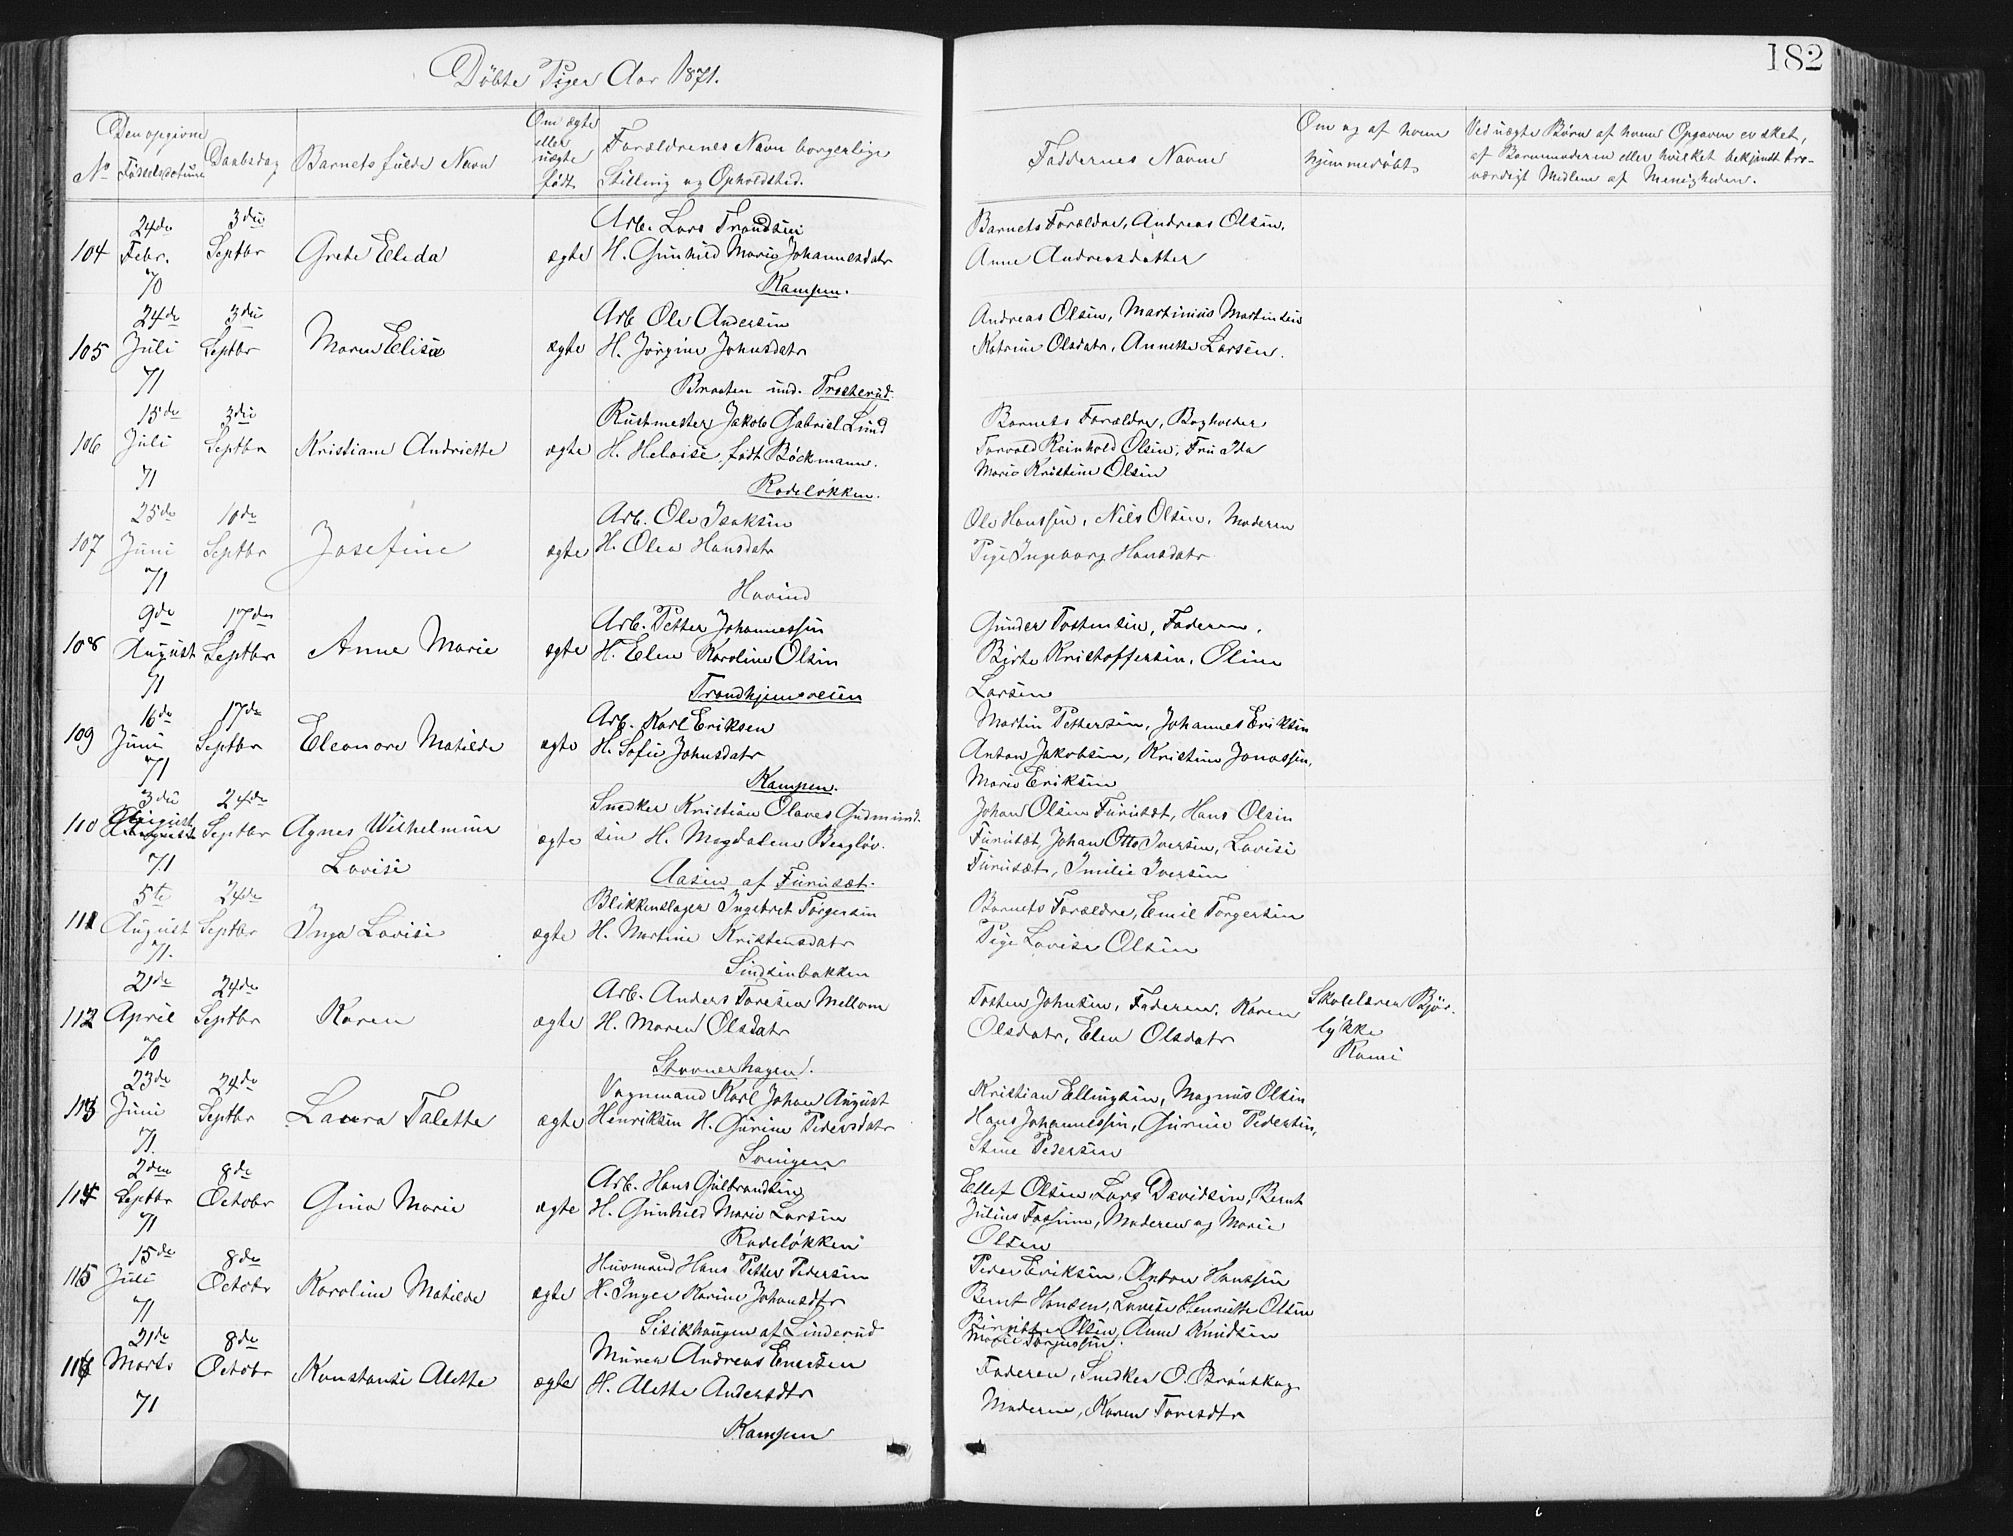 182
Döbte Piger Aar 1871.
No
Den opgivne Fødselsdatum
Daabsdag
Barnets fulde Navn
Om ægte eller uægte født
Forældrenes Navn borgerlige Stilling og Opholdsted.
Faddernes Navne
Om og af hvem hjemmedøbt
Ved uægte Børn af hvem Opgaven er sket,
af Barnemoderen eller hvilket bekjendt tro-
værdigt Medlem af Menigheden.
104 24de Febr. 70 3die Septbr Grete Elida ægte Arb. Lars Trondsen
H. Gunhild Marie Johannesdatr
Kampen.
Barnets Forældre, Andreas Olsen,
Anne Andreasdatter
105 24de Juli 71 3die Septbr Maren Elise ægte Arb Ole Andersen
H. Jørgine Johnsdatr
Braaten und. Trosterud.
Andreas Olsen, Martinius Martinsen
Katrine Olsdatr, Annette Larsen.
106 15de Juli 71 3die Septbr Kristiane Andriette ægte Rustmester Jakob Gabriel Lund
H. Heloise, født Bøckmann.
Rodeløkken.
Barnets Forældre, Bogholder
Torvald Reinhold Olsen, Fru Ida
Marie Kristine Olsen
107 25de Juni 71 10de Septbr Josefine ægte Arb. Ole Isaksen
H. Olea Hansdatr
Hovind
Ole Hanssen, Nils Olsen, Moderen
Pige Ingeborg Hansdatr
108 9de August 71 17de Septbr Anne Marie ægte Arb. Petter Johannessen
H. Elen Karoline Olsen
Trondhjemsveien
Gunder Tostensen, Faderen,
Birte Kristoffersen, Oline
Larsen
109 16de Juni 71 17de Septbr Eleonora Matilde ægte Arb. Karl Eriksen
H. Sofie Johnsdatr
Kampen.
Martin Pettersen, Johannes Eriksen
Anton Jakobsen, Kristine Jonassen,
Marie Eriksen
110 3die August 71 24de Septbr Agnes Wilhelmine
Lovise ægte Snedker Kristian Olaves Gudmund-
sen H. Magdalene Bergløv.
Aasen af Furuset.
Johan Olsen Furuset, Hans Olsen
Furuset, Johan Otto Iversen, Lovise
Furuset, Emilie Iversen
111 5te August 71. 24de Septbr Inga Lovise ægte Blikkenslager Ingebret Torgersen
H. Martine Kristensdatr
Sindsenbakken
Barnets Forældre, Emil Torgersen
Pige Lovise Olsen
112 21de April 70 24de Septbr Karen ægte Arb. Anders Toresen Mellom
H. Maren Olsdatr
Stovnerhagen.
Tosten Johnsen, Faderen, Karen
Olsdatr, Elen Olsdatr
Skolelærer Bjør-
lykke
113 23de Juni 71. 24de Septbr Laura Talette ægte Vognmand Karl Johan August
Henriksen H. Gurine Pedersdatr
Svingen
Kristian Ellingsen, Magnus Olsen
Hans Johannessen, Gurine Pedersen,
Stine Pedersen
114 2den Septbr 71 8de Octobr Gina Marie ægte Arb. Hans Gulbrandsen
H. Gunhild Marie Larsen
Rodeløkken
Ellef Olsen, Lars Davidsen, Bernt
Julius Fossum, Moderen og Marie
Olsen
115 15de Juli 71 8de Octobr Karoline Matilde ægte Husmand Hans Petter Pedersen
H. Inger Karine Johansdtr
Sisikhaugen af Linderud
Peder Eriksen, Anton Hanssen
Bernt Hansen, Lovise Henriette Olsen
Birgitte Olsen, Anne Knudsen
Marie Torjussen.
116 21de Marts 71 8de Octobr Konstanse Alette ægte Murer Andreas Evensen
H. Alette Andersdtr
Kampen
Faderen, Snedker O. Braatskog
Moderen, Karen Toresdtr